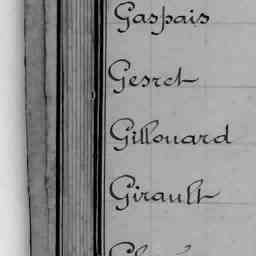 Gaspais
Gesret
Gillouard
Girault